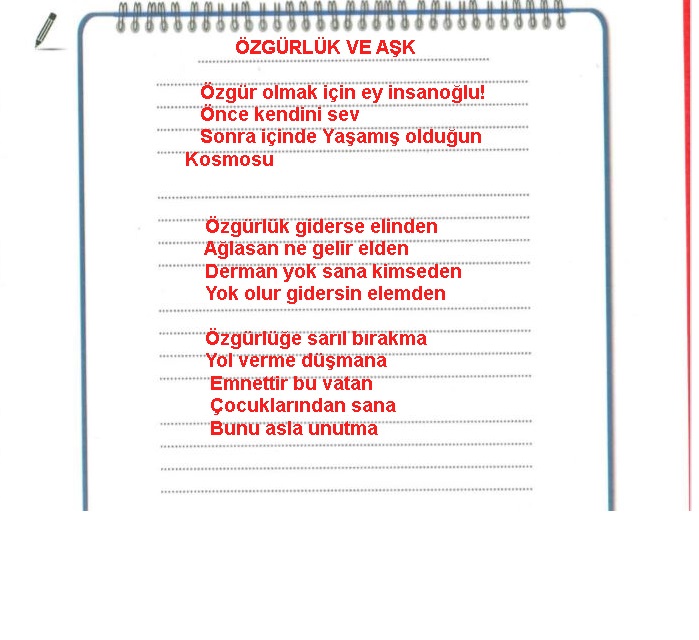 ÖZGÜRLÜK VE AŞK
Özgür olmak için ey insanoğlu!
Önce kendini sev
Sonra içinde Yaşamış olduğun
Kosmosu
Özgürlük giderse elinden
Ağlasan ne gelir elden
Derman yok sana kimseden
Yok olur gidersin elemden
Özgürlüğe sarıl bırakma
Yol verme düşmana
Emnettir bu vatan
Çocuklarından sana
Bunu asla unutma